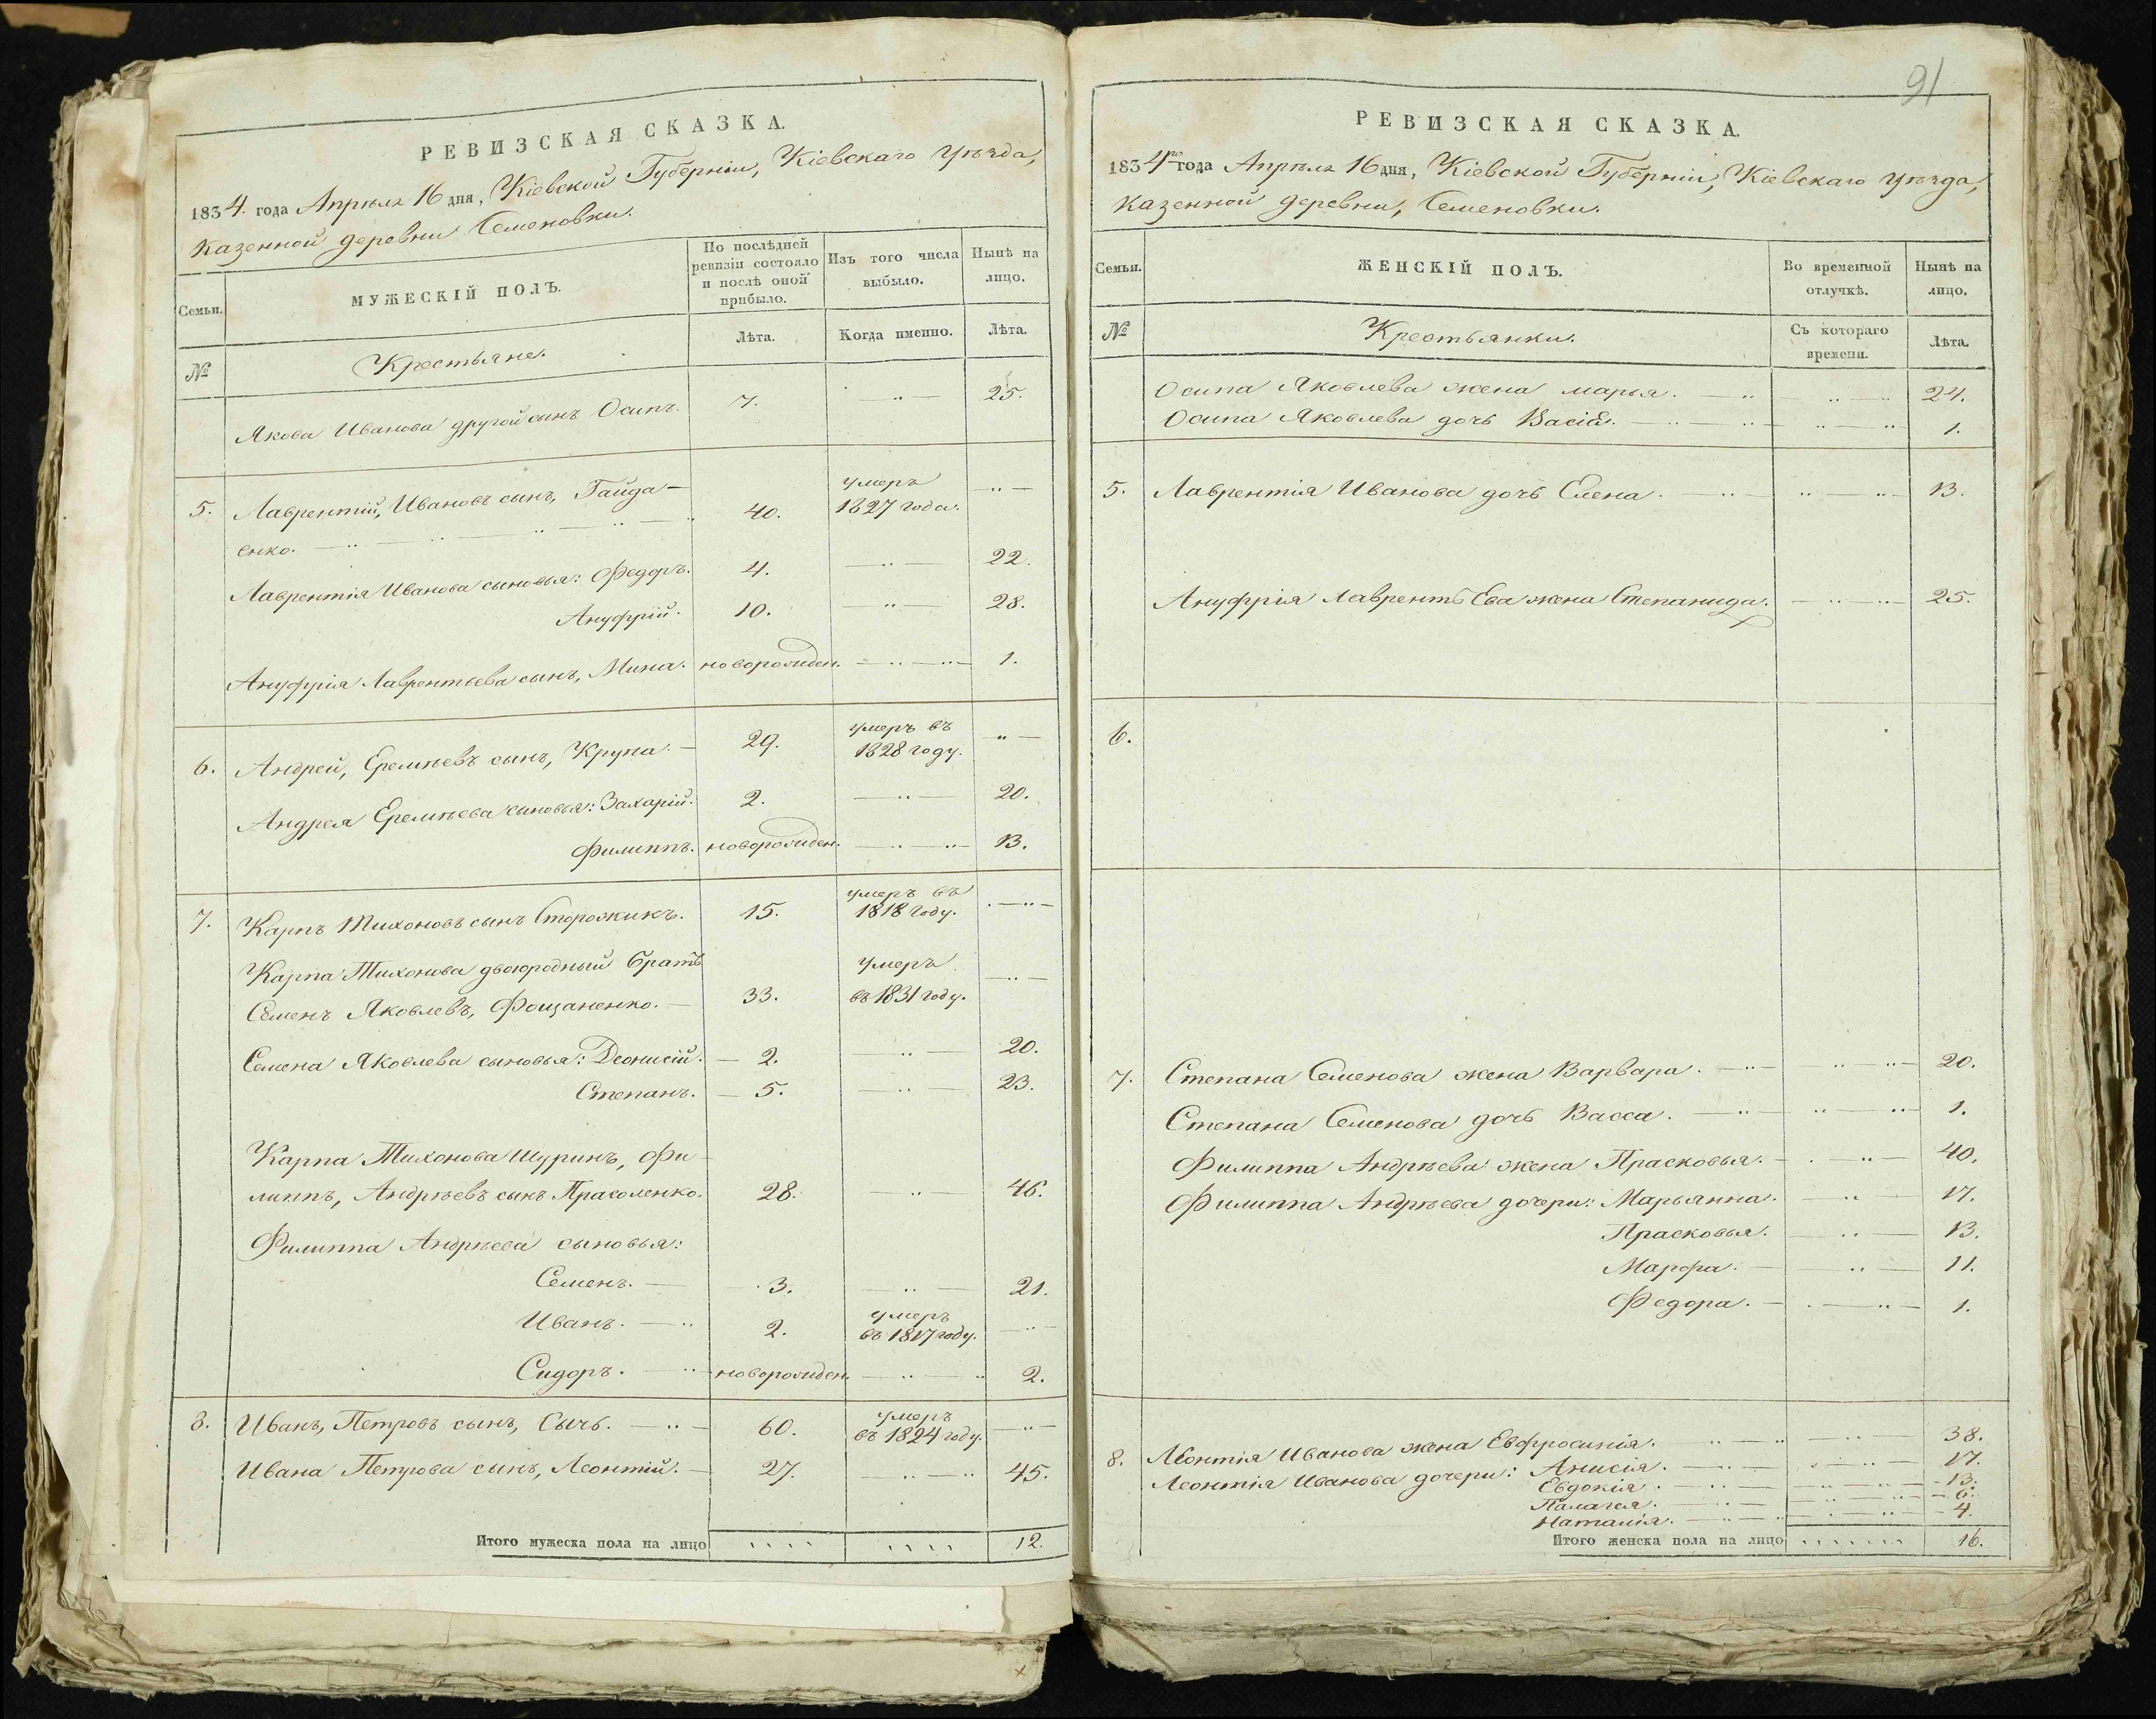 РЕВИЗСКАЯ СКАЗКА.
1834. года Апрѣля 16 дня, Кіевской Губерніи, Кіевскаго Уѣзда,
Казенной деревни Семеновки.
Семьи.
МУЖЕСКІЙ ПОЛЪ.
По послѣдней
ревизіи состояло
и послѣ оной
прибыло.
Изъ того числа
выбыло.
Нынѣ на
лицо.
№
Крестьяне.
Лѣта.
Когда именно.
Лѣта.
Якова Иванова другой сынъ Осипъ. 7. 25.
5. Лаврентій, Ивановъ сынъ, Гайда-
енко. 40. умеръ 1827 года.
Лаврентія Иванова сыновья: Федоръ. 4. 22.
Ануфрій. 10. 28.
Ануфрія Лаврентьева сынъ, Мина. новорожден. 1.
6. Андрей, Еремѣевъ сынъ, Крупа. 29. умеръ въ 1828 году.
Андрея Еремѣева сыновья: Захарій. 2. 20.
Филиппъ. новорожден. 13.
7. Карпъ Тихоновъ сынъ Сторожикъ. 15. умеръ въ 1818 году.
Карпа Тихонова двоюродный братъ
Семенъ Яковлевъ, Фощаненко. 33. умеръ въ 1831 году.
Семена Яковлева сыновья: Деонисій. 2. 20.
Степанъ. 5. 23.
Карпа Тихонова Шуринъ, Фи-
липпъ, Андрѣевъ сынъ 28. 46.
Филиппа Андрѣева сыновья:
Семенъ. 3. 21.
Иванъ. 2. умеръ въ 1817 году.
Сидоръ. новорожден. 2.
8. Иванъ, Петровъ сынъ, Сычь. 60. умеръ въ 1824 году.
Ивана Петрова сынъ, Леонтій. 27. 45.
Итого мужеска пола на лицо 12.
91
РЕВИЗСКАЯ СКАЗКА.
1834го года Апрѣля 16 дня, Кіевской Губерніи, Кіевскаго Уѣзда,
Казенной деревни, Семеновки.
Семьи.
ЖЕНСКІЙ ПОЛЪ.
Во временной
отлучкѣ.
Нынѣ на
лицо.
№
Крестьянки.
Съ котораго
времени.
Лѣта.
Осипа Яковлева жена марья. 24.
Осипа Яковлева дочь 1.
5. Лаврентія Иванова дочь Елена. 13.
Ануфрія Лаврентьева жена Степанида. 25.
6.
7. Степана Семенова жена Варвара. 20.
Степана Семенова дочь Васса. 1.
Филиппа Андрѣева жена Прасковья. 40.
Филиппа Андрѣева дочери: Марьянна. 17.
Прасковья. 13.
Марфа. 11.
Федора. 1.
8. Леонтія Иванова жена Евфросинія. 38.
Леонтія Иванова дочери: Анисія. 17.
Евдокія. 13.
Палагея. 6.
Наталія. 4.
Итого женска пола на лицо 16.